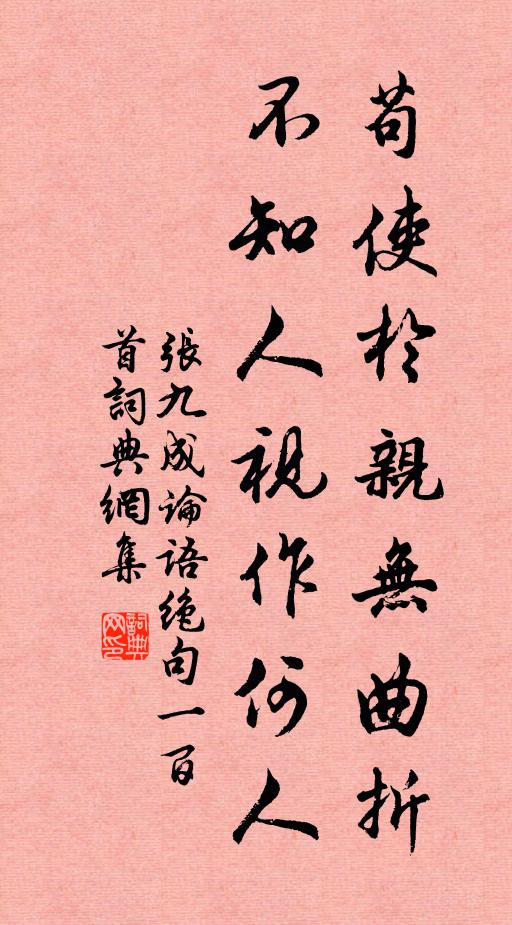 苟使於親無曲折
不知人視作何人
張九成論語绝句一百
首詞典網集
詞典
网印